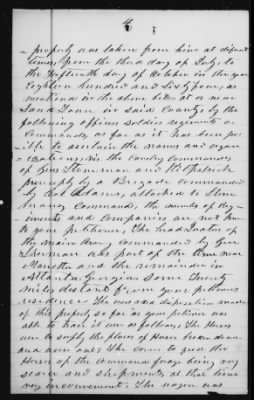 4
property was taken from him at different
times, from the third day of July, to
the fifteenth day of October in the year
Eighteen hundred and Sixty four, as
mentioned in the above bill, at or near
Sand Town in said County, by the
following officers soldiers regiments or
Commands as far as it has been pos
ible to ascertain the names and organ
izations, viz the Cavalry commanders
of Gen Stoneman and
by a Brigade commanded
by Col Adams, attached to Stone
mans Command, the names of Reg-
iments and Companies are not known
to your petitioner, The head Quarters of
the main Army commanded by Gen
Sherman was part of the time near
Marietta and the remainder in
Atlanta Georgia some twenty
miles distant from your petitioners
residence. The uses and disposition made
of this property so far as your petitioner was
able to learn it was as follows, The Horses
were to supply the places of Horses broken down
and worn out, The corn to feed the
Horses of the command forage being very
scarce and shipments at that time
very inconvenient. The wagon was